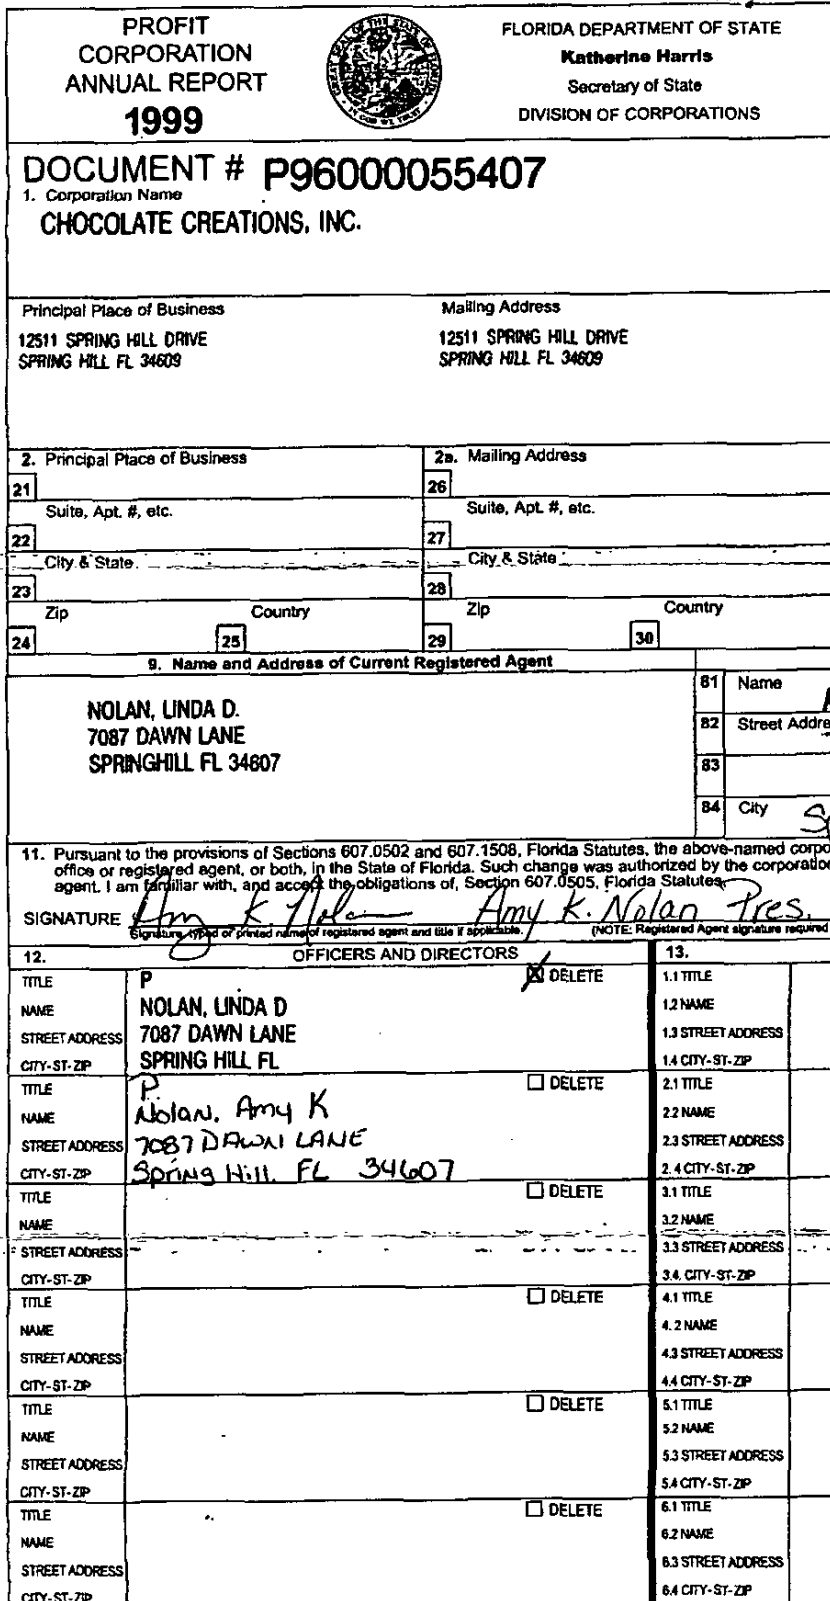 PROFIT
CORPORATION
ANNUAL REPORT
1999
FLORIDA DEPARTMENT OF STATE
Katherine Harris
Secretary of State
DIVISION OF CORPORATIONS
DOCUMENT # P96000055407
1. Corporation Name
CHOCOLATE CREATIONS, INC.
Principal Place of Business
12511 SPRING HILL DRIVE
SPRING HILL FL 34609
Mailing Address
12511 SPRING HILL DRIVE
SPRING HILL FL 34609
2. Principal Place of Business
2a. Mailing Address
21
26
Suite, Apt. #, etc.
Suite, Apt. #, etc.
22
27
City & State
City & State
23
28
Zip
Country
Zip
Country
24
25
29
30
9. Name and Address of Current Registered Agent
NOLAN, LINDA D.
7087 DAWN LANE
SPRINGHILL FL 34607
81 Name
82 Street Addre
83
84 City
11. Pursuant to the provisions of Sections 607.0502 and 607.1508, Florida Statutes, the above-named corpo
office or registered agent, or both, in the State of Florida. Such change was authorized by the corporatio
agent. I am familiar with, and accept the obligations of, Section 607.0505, Florida Statutes.
SIGNATURE Amy K. Nolan Amy K. Nolan Pres.
Signature, typed or printed name of registered agent and title if applicable. (NOTE: Registered Agent signature required
12. OFFICERS AND DIRECTORS
13.
TITLE P DELETE
NAME NOLAN, LINDA D
STREET ADDRESS 7087 DAWN LANE
CITY-ST-ZIP SPRING HILL FL
1.1 TITLE
1.2 NAME
1.3 STREET ADDRESS
1.4 CITY-ST-ZIP
TITLE P DELETE
NAME Nolan, Amy K
STREET ADDRESS 7087 DAWN LANE
CITY-ST-ZIP Spring Hill, FL 34607
2.1 TITLE
2.2 NAME
2.3 STREET ADDRESS
2.4 CITY-ST-ZIP
TITLE DELETE
NAME
STREET ADDRESS
CITY-ST-ZIP
3.1 TITLE
3.2 NAME
3.3 STREET ADDRESS
3.4. CITY-ST-ZIP
TITLE DELETE
NAME
STREET ADDRESS
CITY-ST-ZIP
4.1 TITLE
4.2 NAME
4.3 STREET ADDRESS
4.4 CITY-ST-ZIP
TITLE DELETE
NAME
STREET ADDRESS
CITY-ST-ZIP
5.1 TITLE
5.2 NAME
5.3 STREET ADDRESS
5.4 CITY-ST-ZIP
TITLE DELETE
NAME
STREET ADDRESS
CITY-ST-ZIP
6.1 TITLE
6.2 NAME
6.3 STREET ADDRESS
6.4 CITY-ST-ZIP